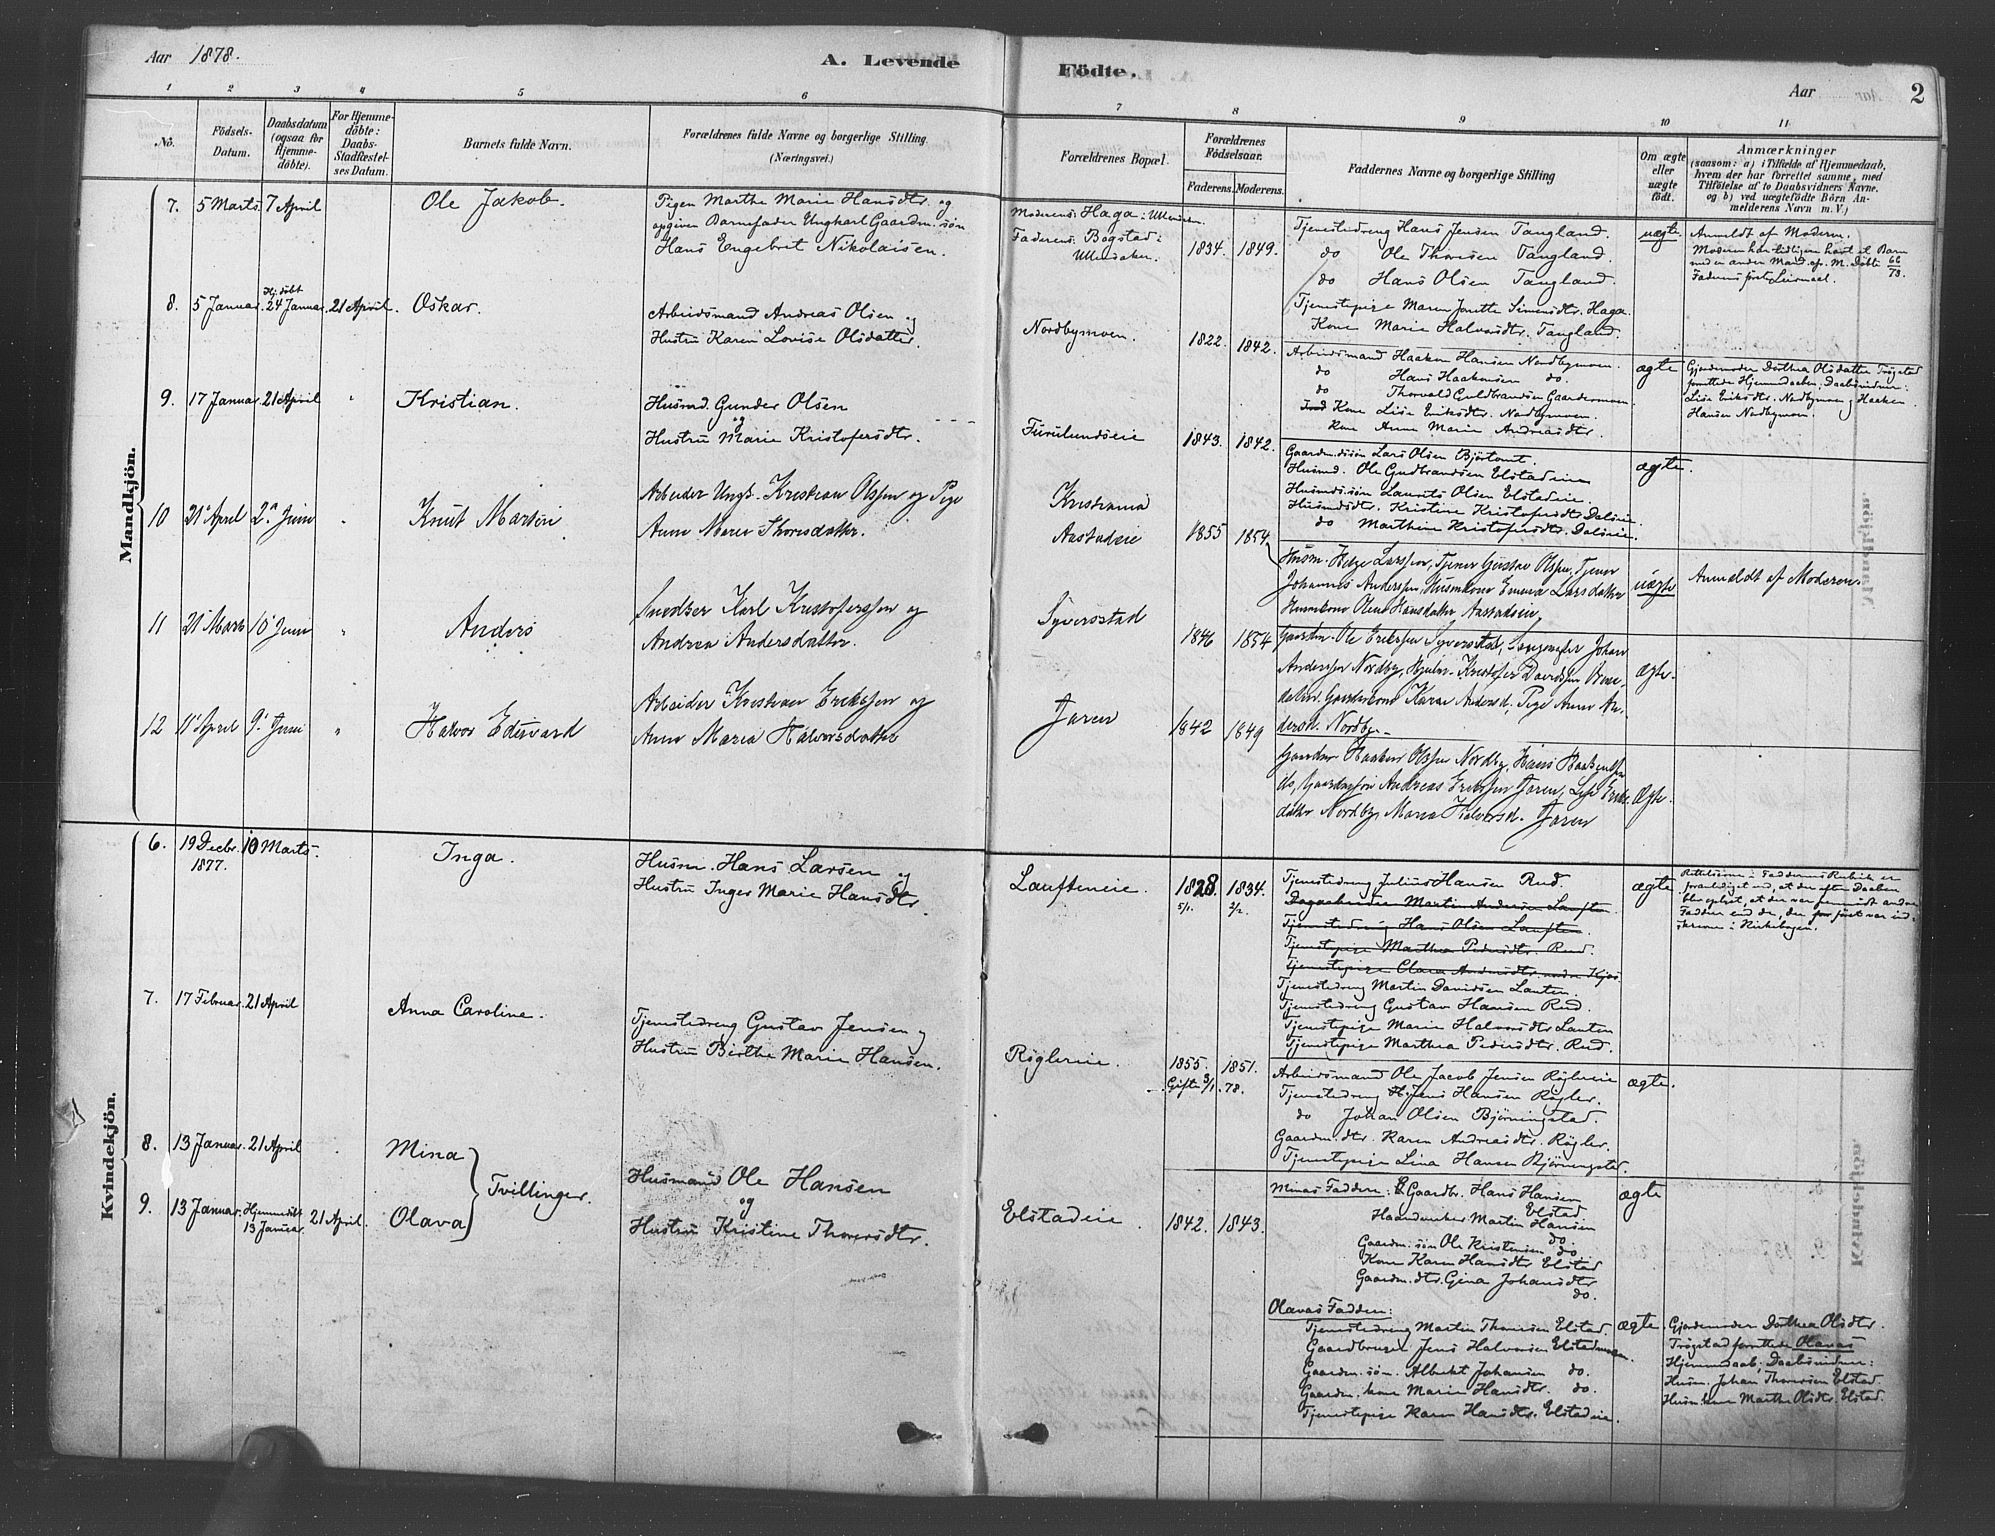 Aar 1878.
A. Levende Födte.
Aar
2
1 2 3 4 5 6 7 8 9 10 11
No.
Födsels-
Datum.
Daabsdatum
(ogsaa for
Hjemme-
döbte).
For Hjemme-
döbte:
Daabs-
Stadfæstel-
ses Datum.
Barnets fulde Navn.
Forældrenes fulde Navne og borgerlige Stilling
(Næringsvei.)
Forældrenes Bopæl.
Forældrenes
Födselsaar.
Faderens. Moderens.
Faddernes Navne og borgerlige Stilling
Om ægte
eller
uægte
födt.
Anmærkninger
(saasom: a) i Tilfælde af Hjemmedaab,
hvem der har forrettet samme, med
Tilföielse af to Daabsvidners Navne,
og b) ved uægtefödte Börn An-
melderens Navn m. V.)
Mandkjön.
7. 5 Marts 7 April
Ole Jakob.
Pigen Marthe Marie Hansdtr. og
opgiven Barnefader Ungkarl Gaardm. søn
Hans Engebret Nikolaisen.
Moderens: Haga i Ullensaker.
Faderens: Bogstad i
Ullensaker.
1834. 1849.
Tjenestedreng Hans Jensen Tangland.
do Ole Thoresen Tangland.
do Hans Olsen Tangland.
Tjenestepige Maren Jonette Simensdtr. Haga.
Kone Marie Halvorsdtr. Tangland.
uægte
Anmeldt af Moderen.
Moderen har tidligere havt et Barn
med en anden Mand, Døbt 66/73.
Faderens første Leiermaal.
8. 5 Januar. Hj.døbt 24 Januar. 21 April.
Oskar.
Arbeidsmand Andreas Olsen og
Hustru Karen Lovise Olsdatter.
Nordbymoen.
1822. 1842.
Arbeidsmand Haaken Hansen Nordbymoen.
do Hans Haakensen do.
do Thorvald Guldbrandsen Gaardermoen
Kone Lise Eriksdtr. Nordbymoen.
Kone Anne Marie Andreasdtr.
ægte
Gjordemoder Dorthea Olsdatter Trøgstad
forrettede Hjemmedaaben. Daabsvidner:
Lise Eriksdtr. Nordbymoen og Haaken
Hansen Nordbymoen.
9. 17 Januar 21 April "
Kristian.
Husmd. Gunder Olsen
og
Hustru Marie Kristofersdtr.
Furulundseie
1843. 1842.
Gaardm.søn Lars Olsen Bjørtomt.
Husmd. Ole Gudbrandsen Elstadeie
Husmds.søn Laurits Olsen Elstadeie.
Husmdsdtr. Kristine Kristofersdtr. Daløeie.
do Marthine Kristofersdtr. Daløeie.
ægte.
10 21 April 2 Juni "
Knut Martin
Arbeider Ungk. Kristian Olssen og Pige
Anne Marie Thorsdatter.
Kristiania
Aastadeie
1855 1854
Husm. Helge Larssen, Tjener Gustav Olssen, Tjener
Johannes Anderssen, Husmkone Emma Larsdatter
Husmkone Olene Hansdatter Aastadeie.
uægte
Anmeldt af Moderen.
11 21 Marts 10 Juni "
Anders
Snedker Karl Kristoferssen og
Andrea Andersdatter.
Syversstad
1846 1854
Gaardm. Ole Erikssen Syversstad, Johan
Anderssen Nordby, Kristofer Davidssen
Gaardmkone Karen Andersd., Pige Anne An-
dersd. Nordby.
Ægte.
12 11 April 9 Juni "
Halvor Edevard
Arbeider Kristian Erikssen og
Anne Maria Halvorsdatter
Jaren
1842 1849
Gaardm Haaken Olssen Nordby, Hans Haakenssen
do, Gaardmssøn Andreas Erikssen Jaren, Lise Eriks-
datter Nordby, Maria Halvorsd. Jaren
Ægte.
Kvindekjön.
6. 19 Decbr. 1877. 10 Marts.
Inga.
Husm. Hans Larsen og
Hustru Inger Marie Hansdtr.
Laufteneie.
1828 5/1. 1834. 2/2.
Tjenestedreng Julius Hansen Rud.
Dagarbeider Martin Andersen Lauften.
Tjenestedreng Hans Olsen Lauften.
Tjenestepige Marthea Pedersdtr. Rud.
Tjenestepige Clara Andersdtr. nedre Hjøs
Tjenestedreng Martin Davidsen Lauten.
Tjenestedreng Gustav Hansen Rud.
Tjenestepige Marie Halvorsdtr. Lauten
Tjenestepige Marthea Pedersdtr. Rud.
ægte
Rettelserne i Faddernes Rubrik er
foranlediget ved, at der efter Daaben
blev oplyst, at der var fremmødt andre
Faddere end de, der før først var ind-
skrevne i Kirkebogen.
7. 17 Februar. 21 April
Anna Caroline.
Tjenestedreng Gustav Jensen og
Hustru Birthe Marie Hansen.
Røglereie.
1855. 1851.
Gifte 3/1. 78.
Arbeidsmand Ole Jacob Jensen Røglereie
Tjenestedreng Jens Hansen Røgler.
do Johan Olsen Bjørningstad.
Gaardm.dtr. Karen Andreasdtr. Røgler.
Tjenestepige Lina Hansen Bjørningstad.
ægte.
8. 13 Januar. 21 April
Mina
9. 13 Januar. Hjemmedøbt 13 Januar. 21 April.
Olava
Tvillinger.
Husmand Ole Hansen
og
Hustru Kristine Thoresdtr.
Elstadeie
1842. 1843.
Minas Faddere: Gaardbr. Hans Hansen
Elstad
Haandverker Martin Hansen
do.
Gaardm.søn Ole Kristensen do.
Kone Karen Hansdtr Elstad
Gaardm.dtr. Gina Johansdtr
do.
ægte
Olavas Faddere:
Tjenestedreng Martin Thoresen Elstad.
Gaardbruger Jens Halvorsen Elstadmoen.
Gaardm.søn. Albert Johansen do.
Gaardm.kone Marie Hansdtr. do.
Tjenestepige Karen Hansdtr. Elstadeie.
ægte.
Gjordemoder Dorthea Olsdtr.
Trøgstad forrettede Olavas
Hjemmedaab; Daabsvidner:
Husm. Johan Thoresen Elstad.
Husm.kone Marthe Olsdtr. Elstad.